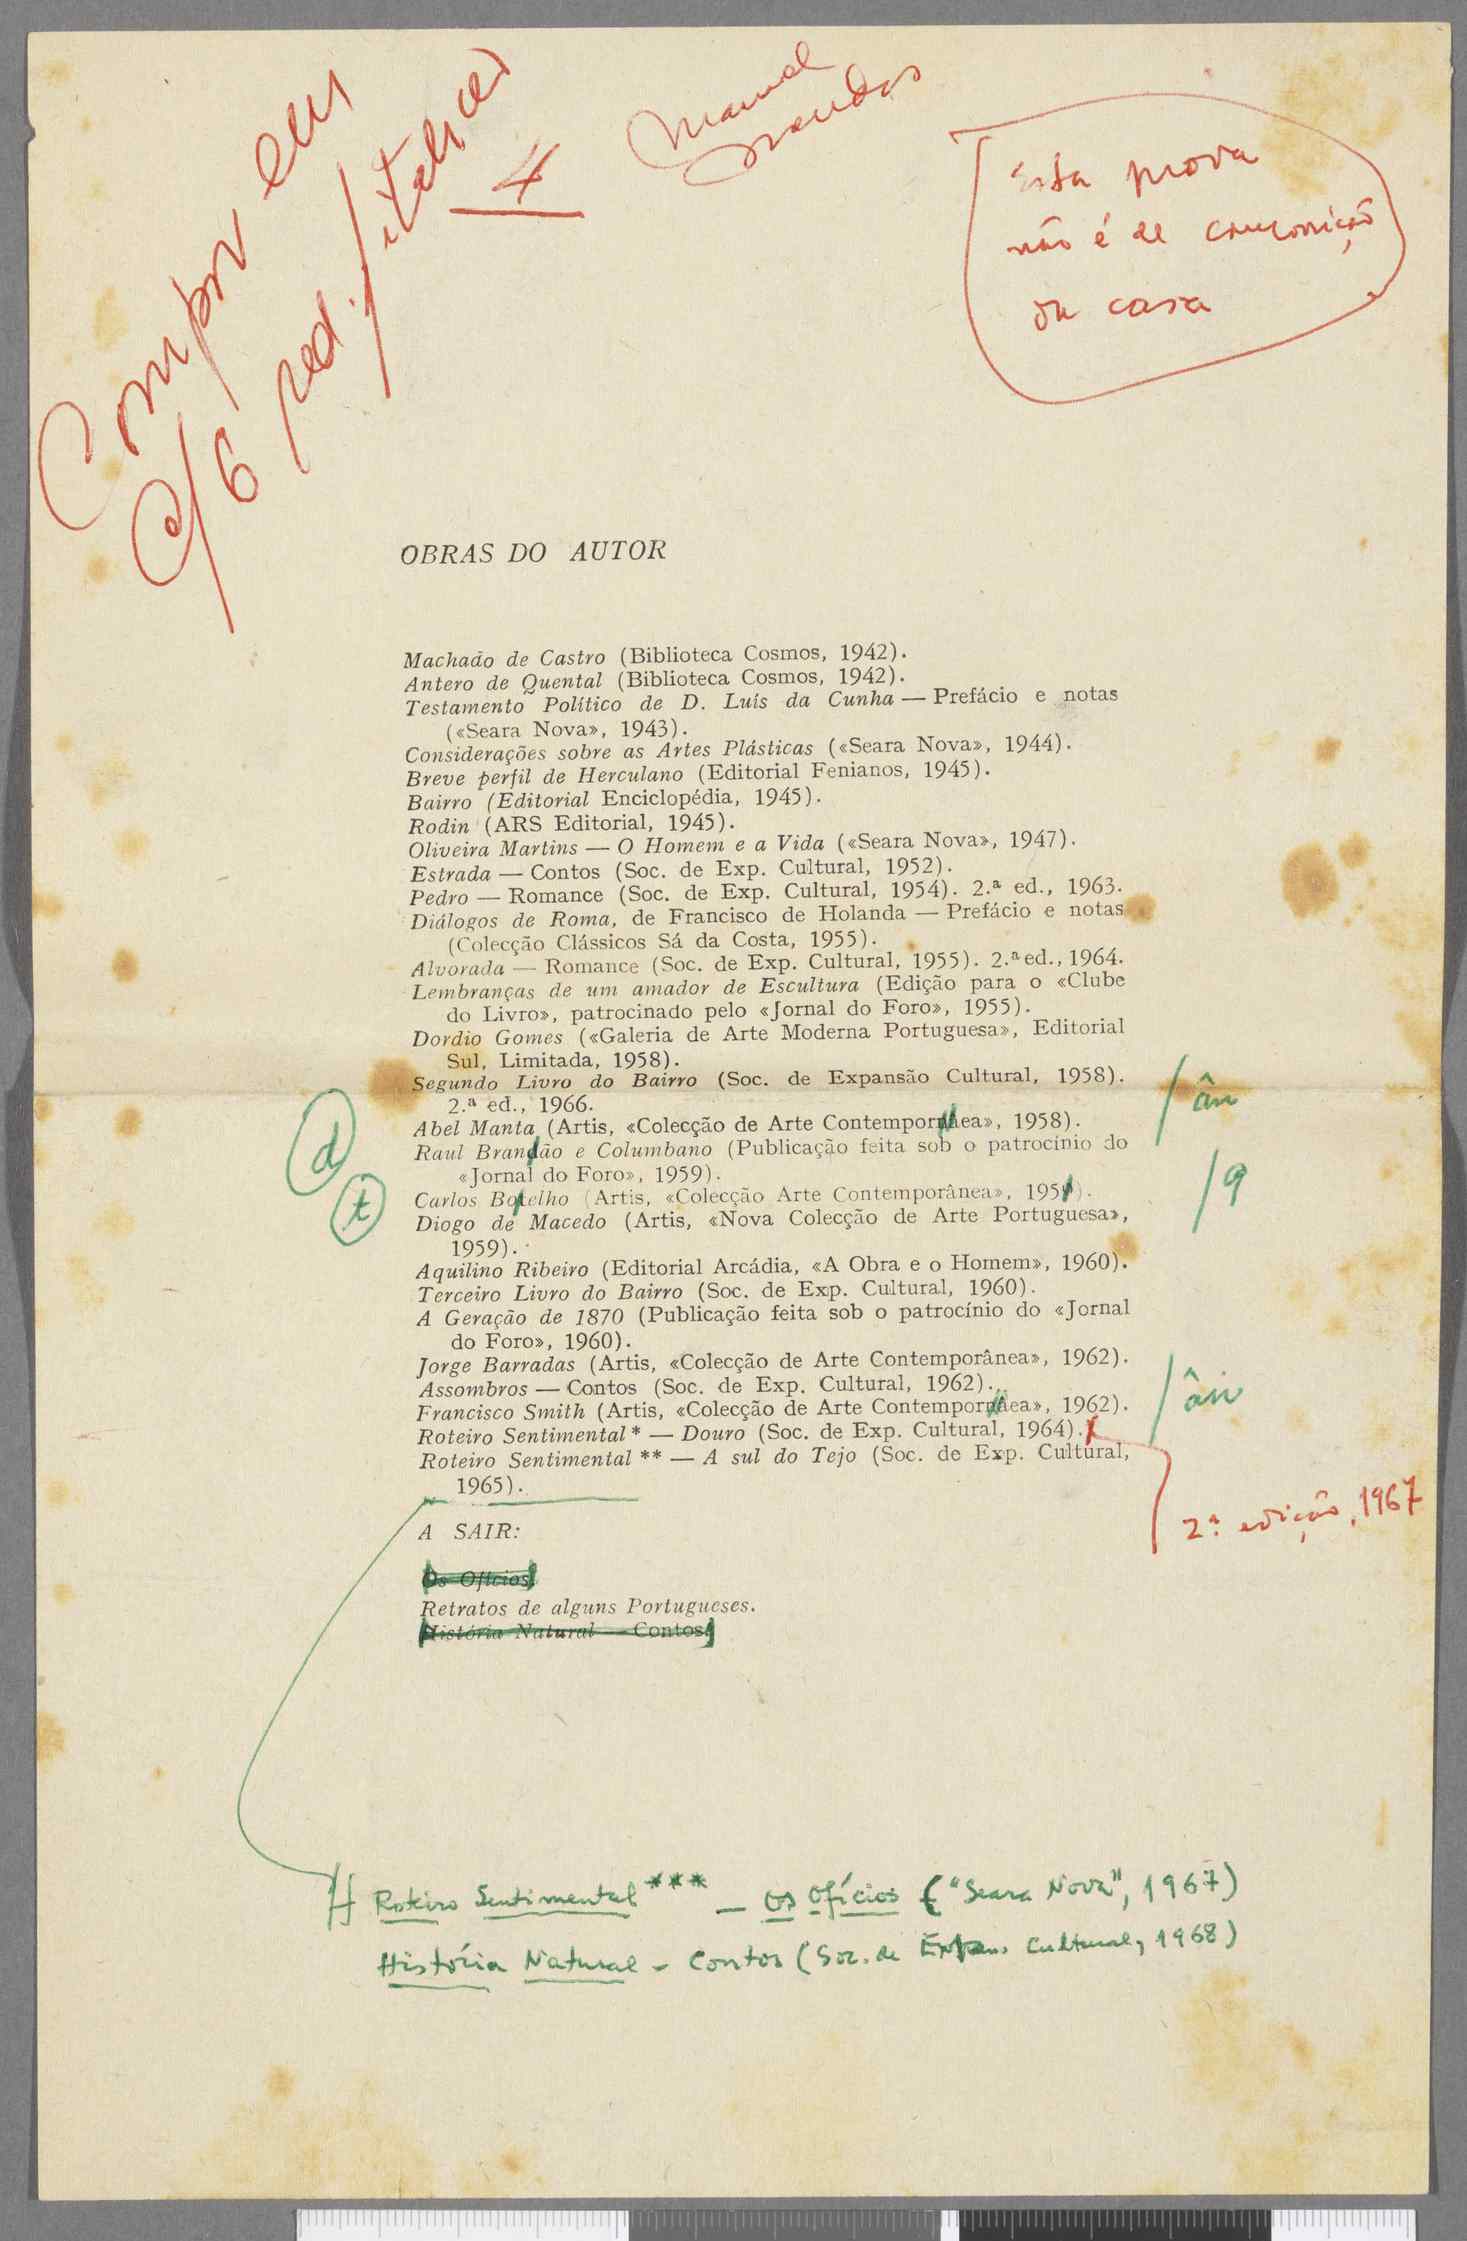 Compor em
c/ 6 red./italico
4
Manuel
Mendes
Esta prova
não é de composição
da casa
OBRAS DO AUTOR
Machado de Castro (Biblioteca Cosmos, 1942).
Antero de Quental (Biblioteca Cosmos, 1942).
Testamento Político de D. Luís da Cunha — Prefácio e notas
(«Seara Nova», 1943).
Considerações sobre as Artes Plásticas («Seara Nova», 1944).
Breve perfil de Herculano (Editorial Fenianos, 1945).
Bairro (Editorial Enciclopédia, 1945).
Rodin (ARS Editorial, 1945).
Oliveira Martins — O Homem e a Vida («Seara Nova», 1947).
Estrada — Contos (Soc. de Exp. Cultural, 1952).
Pedro — Romance (Soc. de Exp. Cultural, 1954). 2.ª ed., 1963.
Diálogos de Roma, de Francisco de Holanda — Prefácio e notas
(Colecção Clássicos Sá da Costa, 1955).
Alvorada — Romance (Soc. de Exp. Cultural, 1955). 2.ª ed., 1964.
Lembranças de um amador de Escultura (Edição para o «Clube
do Livro», patrocinado pelo «Jornal do Foro», 1955).
Dordio Gomes («Galeria de Arte Moderna Portuguesa», Editorial
Sul, Limitada, 1958).
Segundo Livro do Bairro (Soc. de Expansão Cultural, 1958).
2.ª ed., 1966.
/ ân
Abel Manta (Artis, «Colecção de Arte Contempornâea», 1958).
d
Raul Brandão e Columbano (Publicação feita sob o patrocínio do
«Jornal do Foro», 1959).
/ 9
t
Carlos Botelho (Artis, «Colecção Arte Contemporânea», 195).
Diogo de Macedo (Artis, «Nova Colecção de Arte Portuguesa»,
1959).
Aquilino Ribeiro (Editorial Arcádia, «A Obra e o Homem», 1960).
Terceiro Livro do Bairro (Soc. de Exp. Cultural, 1960).
A Geração de 1870 (Publicação feita sob o patrocínio do «Jornal
do Foro», 1960).
Jorge Barradas (Artis, «Colecção de Arte Contemporânea», 1962).
Assombros — Contos (Soc. de Exp. Cultural, 1962).
/ ân
Francisco Smith (Artis, «Colecção de Arte Contempornâea», 1962).
Roteiro Sentimental * — Douro (Soc. de Exp. Cultural, 1964).
2.ª edição, 1967
Roteiro Sentimental ** — A sul do Tejo (Soc. de Exp. Cultural,
1965).
A SAIR:
Os Ofícios
Retratos de alguns Portugueses.
História Natural — Contos
Roteiro Sentimental *** — Os Ofícios ("Seara Nova", 1967)
História Natural - Contos (Soc. de Expans. Cultural, 1968)